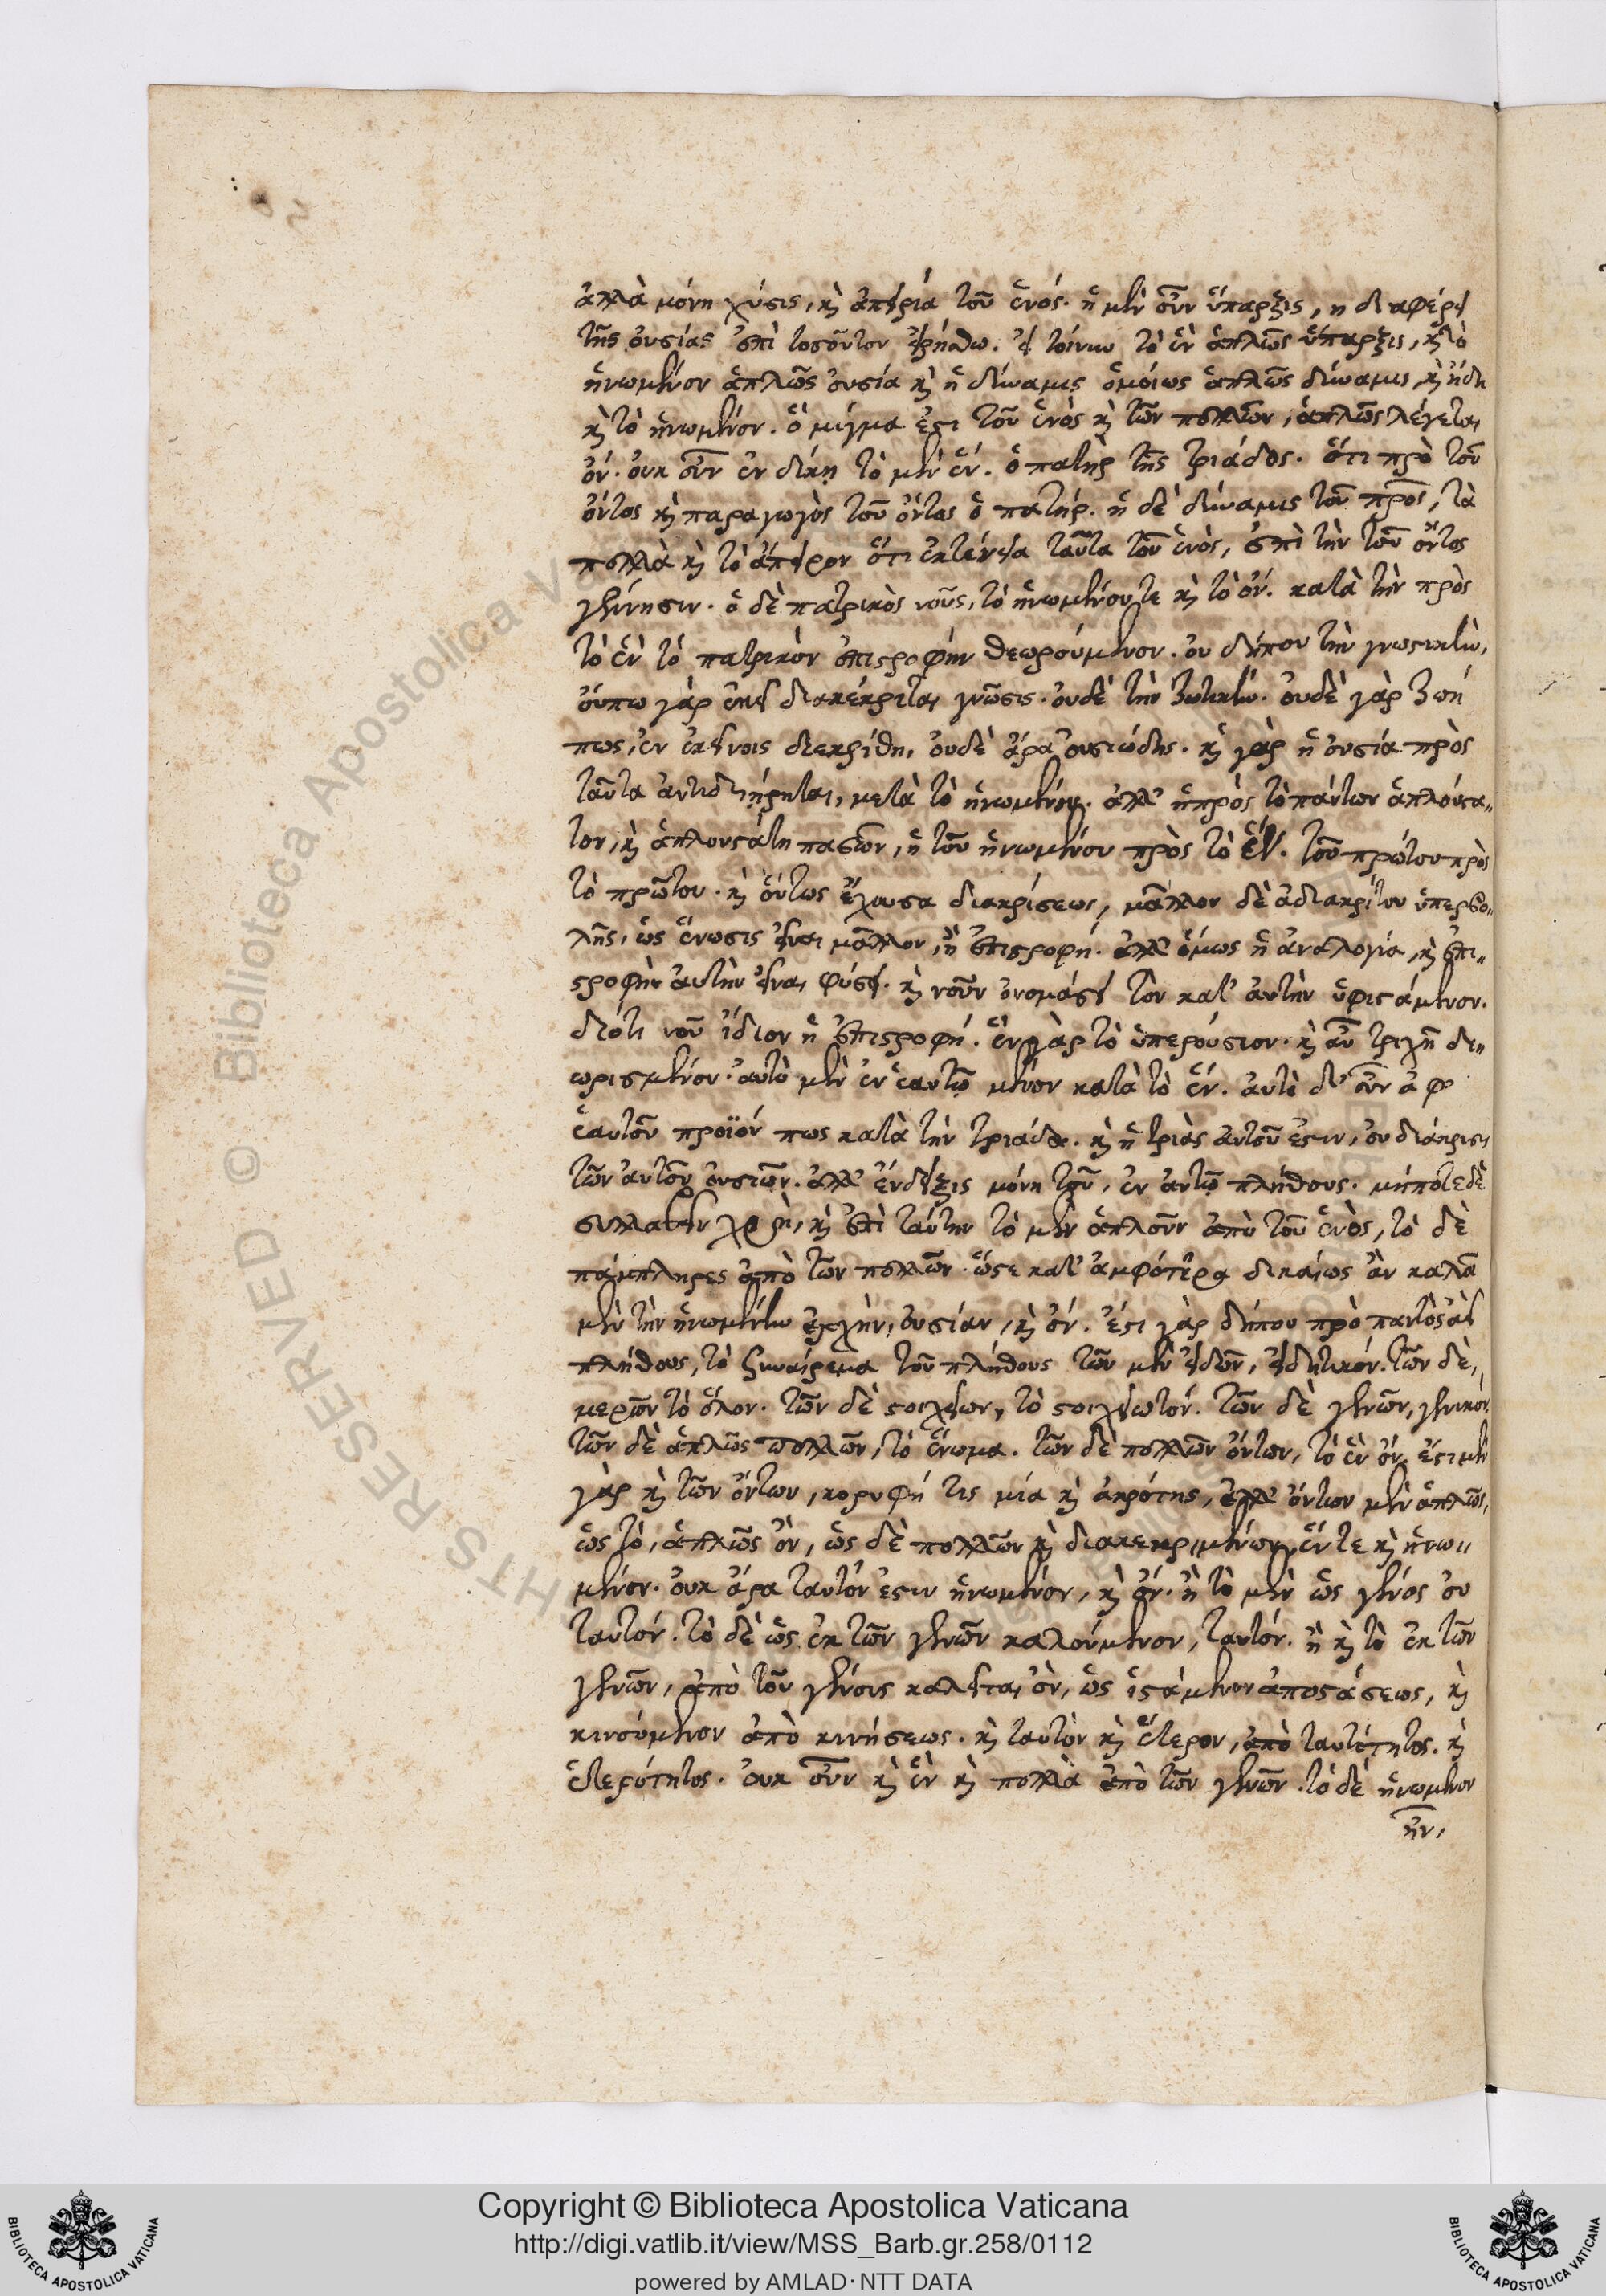 ἀλλὰ μόνη χύσις, καὶ ἀπειρία τοῦ ἑνός. ἡ μὲν οὖν ὕπαρξις, η διαφέρει
τῆς οὐσίας ἐπὶ τοσοῦτον εἰρήσθω. εἰ τοίνυν τὸ ἓν ἁπλῶς ὕπαρξις, καὶ τὸ
ἡνωμένον ἁπλῶς οὐσία καὶ ἡ δύναμις ὁμοίως ἁπλῶς δύναμις, καὶ ἤδη
καὶ τὸ ἡνωμένον. ὃ μίγμα ἐστι τοῦ ἑνὸς καὶ τῶν πολλῶν, ἁπλῶς λέγεται
ὄν. οὐκ οὖν ἐν δίκῃ τὸ μὲν ἕν. ὁ πατὴρ τῆς τριάδος. ὅτι πρὸ τοῦ
ὄντος καὶ παραγωγὸς τοῦ ὄντος ὁ πατήρ. ἡ δὲ δύναμις τοῦ πρὸς, τὰ
πολλὰ καὶ τὸ ἄπειρον ὅτι ἐκτένεια ταῦτα τοῦ ἑνὸς, ἐπὶ τὴν τοῦ ὄντος
γέννησιν. ὁ δὲ πατρικὸς νοῦς, τὸ ἡνωμένον τε καὶ τὸ ὄν. κατὰ τὴν πρὸς
τὸ ἓν τὸ πατρικὸν ἐπιστροφὴν θεωρούμενον. οὐ δήπου τὴν γνωστικὴν,
οὔπω γὰρ ἐκεῖ διακέκριται γνῶσις. οὐδὲ τὴν ζωτικὴν. οὐδὲ γὰρ ζωή
πως, ἐν ἐκείνοις διεκρίθη, οὐδὲ ἄρα οὐσιώδης. καὶ γὰρ ἡ οὐσία πρὸς
ταῦτα ἀντιδιῄρηται, μετὰ τὸ ἡνωμένον. ἀλλ' ἡ πρὸς τὸ πάντων ἁπλούστα„
τον, καὶ ἁπλουστάτη πασῶν, ἡ τοῦ ἡνωμένου πρὸς τὸ ἕν. τοῦ πρώτου πρὸς
τὸ πρῶτον. καὶ οὕτως ἔχουσα διακρίσεως, μᾶλλον δὲ ἀδιακρίτου ὑπερβο„
λῆς, ὡς ἕνωσις εἶναι μᾶλλον, ἢ ἐπιστροφή. ἀλλ' ὅμως ἡ ἀναλογία, καὶ ἐπι„
στροφὴν αὐτὴν εἶναι φύσει. καὶ νοῦν ὀνομάσει τὸν κατ' αὐτὴν ὑφιστάμενον.
διότι νοῦ ἴδιον ἡ ἐπιστροφή. ἓν γὰρ τὸ ὑπερούσιον. καὶ αὖ τριχῇ δι„
ωρισμένον. αὐτὸ μὲν ἐν ἑαυτῷ μένον κατὰ τὸ ἕν. αὐτὸ δ' οὖν ἀφ'
ἑαυτοῦ προϊόν πως κατὰ τὴν τριάδα. καὶ ἡ τριὰς αὐτοῦ ἐστιν, οὐ διάκρισις
τῶν αὐτοῦ οὐσιῶν. ἀλλ' ἔνδειξις μόνη τοῦ, ἐν αὐτῷ πλήθους. μήποτε δὲ
χρὴ, καὶ ἐπὶ ταύτην τὸ μὲν ἁπλοῦν ἀπὸ τοῦ ἑνὸς, τὸ δὲ
πάμπληρες ἀπὸ τῶν πολλῶν. ὥστε κατ' ἀμφότερα δικαίως ἂν
μὲν τὴν ἡνωμένην ἀρχὴν, οὐσίαν, καὶ ὄν. ἔστι γὰρ δήπου πρὸ παντὸς ἀεὶ
πλήθους, τὸ ξυναίρεμα τοῦ πλήθους τῶν μὲν εἰδῶν, εἰδητικόν. τῶν δὲ,
μερῶν τὸ ὅλον. τῶν δὲ στοιχείων, τὸ στοιχειωτόν. τῶν δὲ γενῶν, γενικόν.
τῶν δὲ ἁπλῶς πολλῶν, τὸ ἕνωμα. τῶν δὲ πολλῶν ὄντων, τὸ ἓν ὄν. ἔστι μὲν
γὰρ καὶ τῶν ὄντων, κορυφή τις μία καὶ ἀκρότης, ἀλλ' ὄντων μὲν ἁπλῶς,
ὡς τὸ, ἁπλῶς ὂν, ὡς δὲ πολλῶν καὶ διακεκριμένων, ἕν τε καὶ ἡνω„
μένον. οὐκ ἄρα ταυτόν ἐστιν ἡνωμένον, καὶ ὄν. ἢ τὸ μὲν ὡς γένος οὐ
ταυτόν. τὸ δὲ ὡς ἐκ τῶν γενῶν καλούμενον, ταυτόν. ἢ καὶ τὸ ἐκ τῶν
γενῶν, ἀπὸ τοῦ γένους καλεῖται ὂν, ὡς ἱστάμενον ἀπὸ στάσεως, καὶ
κινούμενον ἀπὸ κινήσεως. καὶ ταυτὸν καὶ ἕτερον, ἀπὸ ταυτότητος. καὶ
ἑτερότητος. οὐκ οὖν καὶ ἓν καὶ πολλὰ ἀπὸ τῶν γενῶν. τὸ δὲ ἡνωμένον
ἦν,
HTS RESERVED © Biblioteca Apostolica V
Copyright © Biblioteca Apostolica Vaticana
http://digi.vatlib.it/view/MSS_Barb.gr.258/0112
powered by AMLAD·NTT DATA
BIBLIOTECA APOSTOLICA VATICANA
BIBLIOTECA APOSTOLICA VATICANA